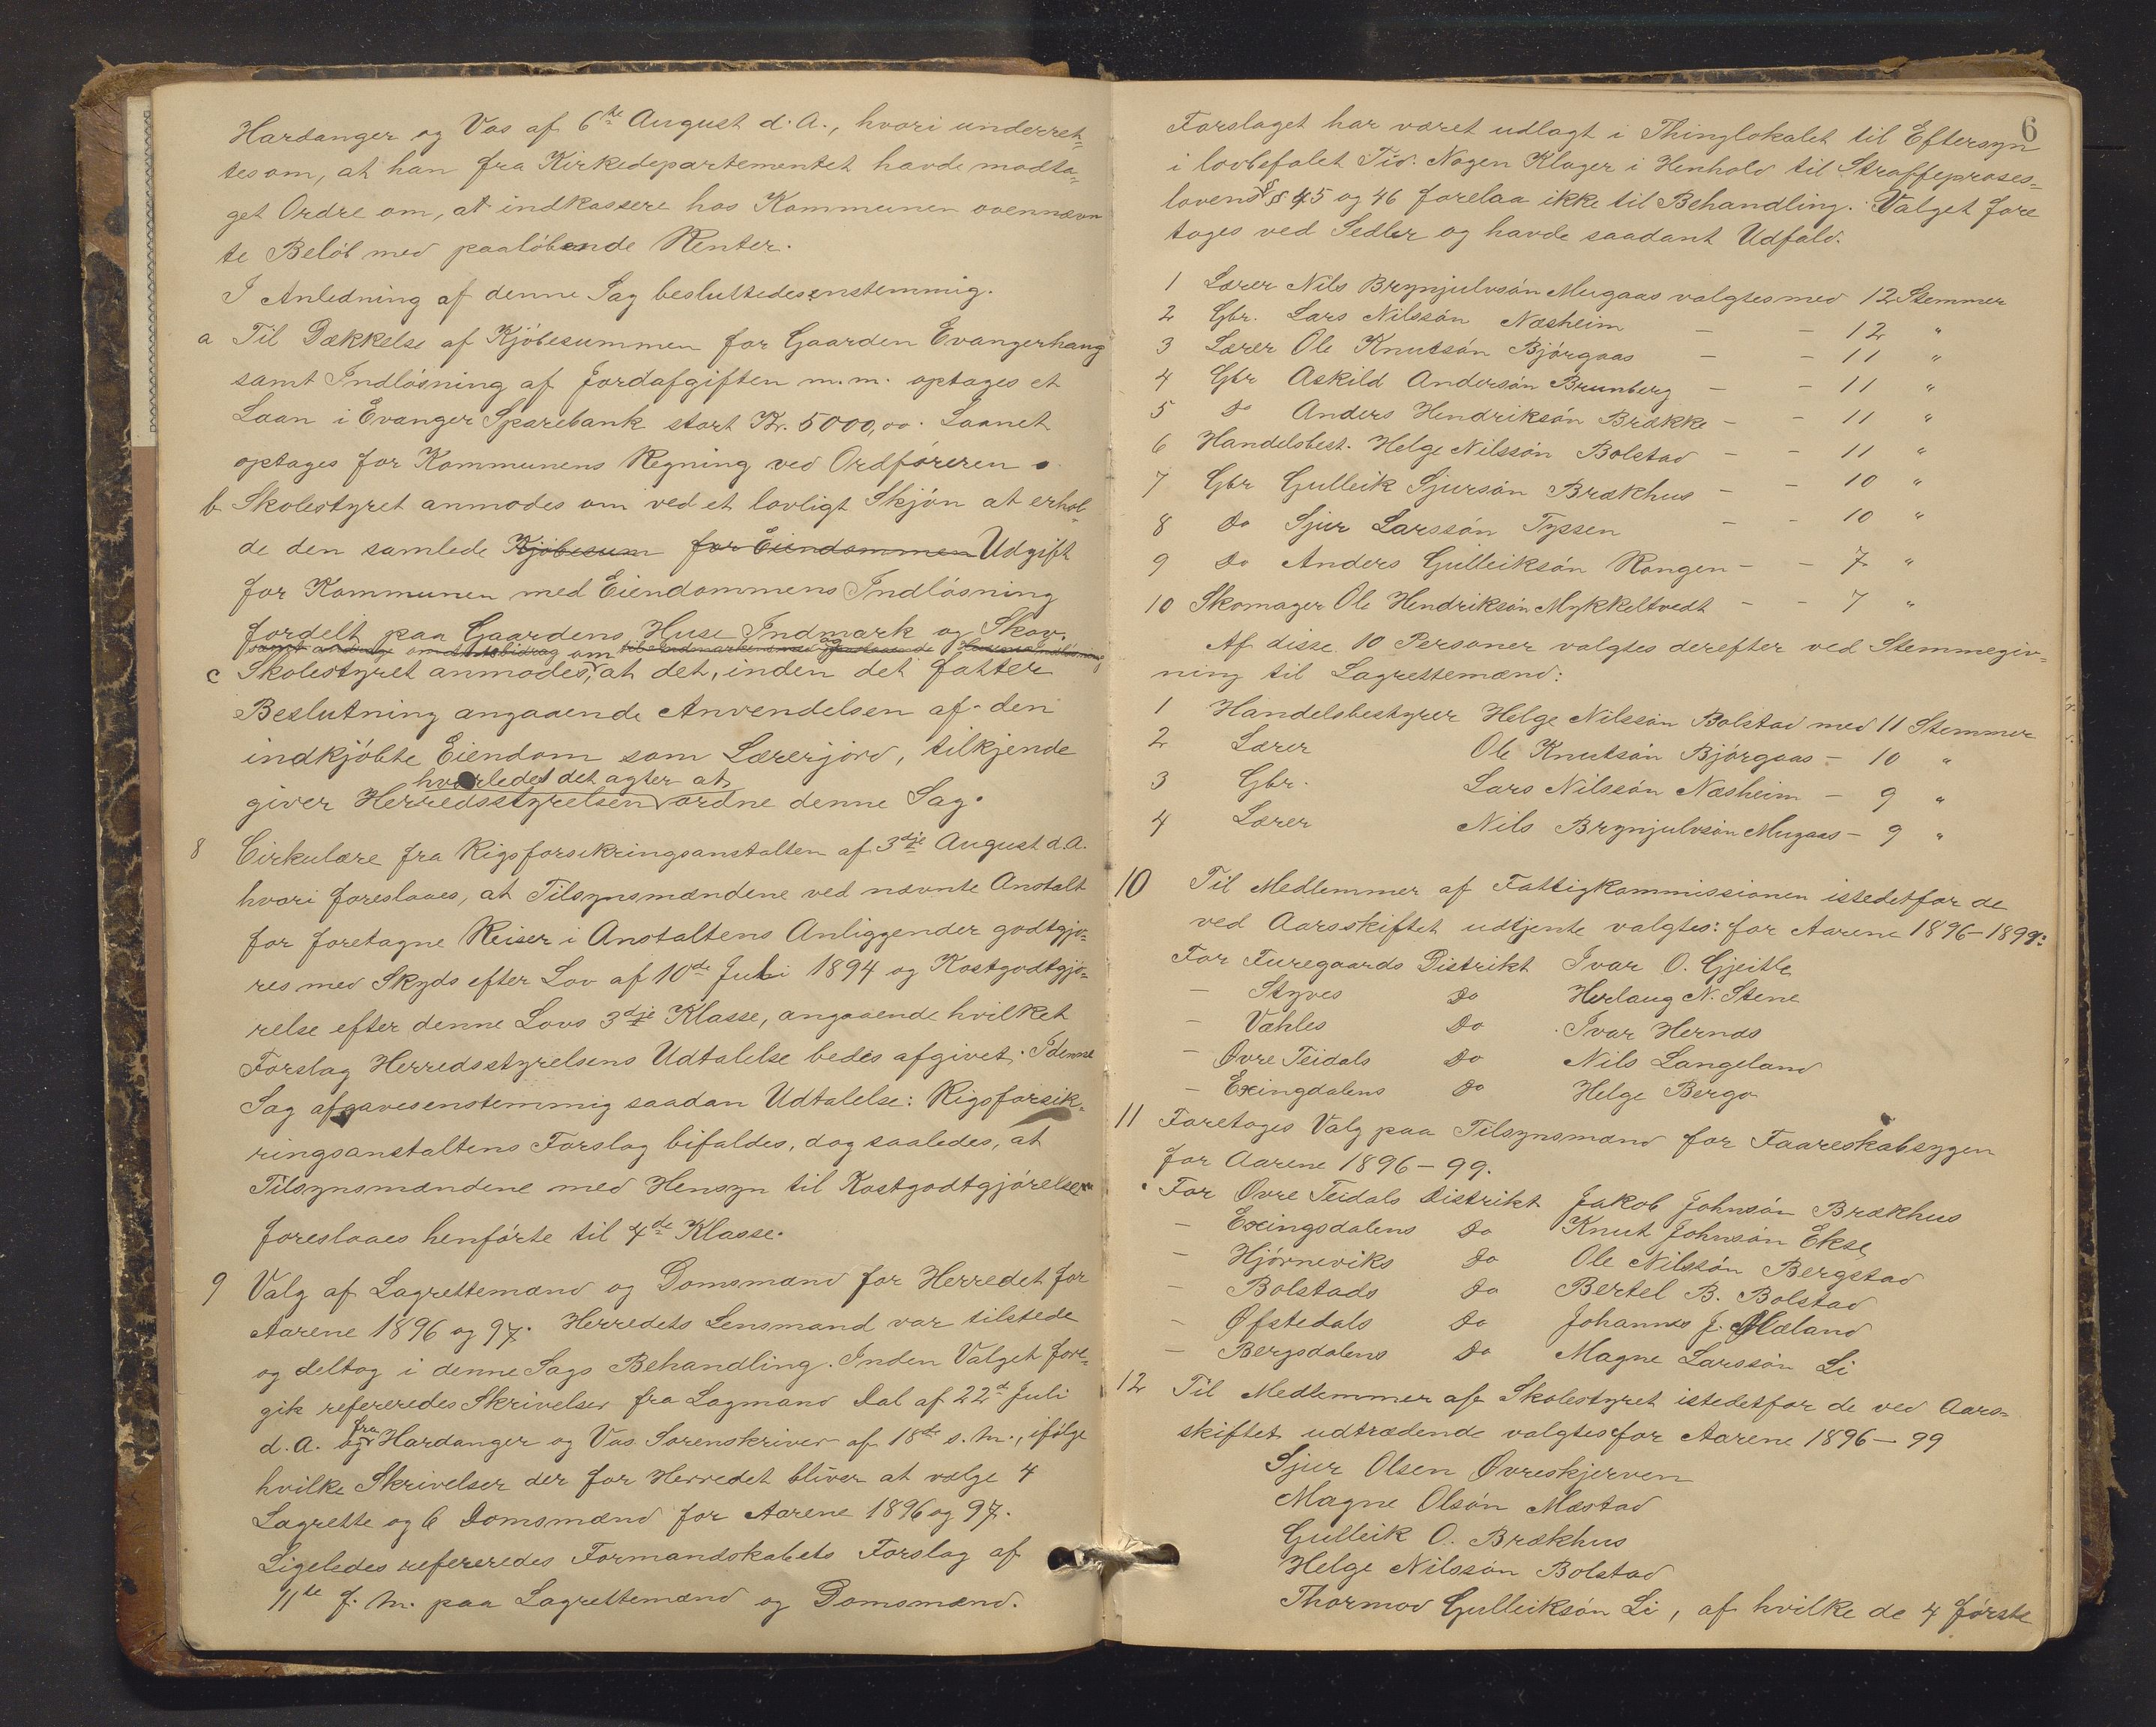 Hardanger og Vos af 6te August d. A., hvori underret-
tes om, at han fra Kirkedepartementet havde modta-
get Ordre om, at indkassere hos Kommunen ovennævn
te Beløb med paaløbende Renter.
I Anledning af denne Sag besluttedes enstemmig.
a Til Dækkelse af Kjøbesummen for Gaarden Evangerhaug
samt Indløsning af Jordafgiften m.m. optages et
Laan i Evanger Sparebank stort Kr. 5000,00. Laanet
optages for Kommunens Regning ved Ordføreren.
b Skolestyret anmodes om ved et lovligt Skjøn at erhol-
de den samlede Kjøbesum for Eiendommen Udgift
for Kommunen med Eiendommens Indløsning
fordelt paa Gaardens Huse Indmark og Skov.
c Skolestyret anmodes om, at det, inden det fatter
Beslutning angaaende Anvendelsen af den
indkjøbte Eiendom som Lærerjord, tilkjende
hvorledes det agter at
giver Herredsstyrelsen ordne denne Sag.
8 Cirkulære fra Rigsforsikringsanstalten af 3dje August d.A.
hvori foreslaaes, at Tilsynsmændene ved nævnte Anstalt
for foretagne Reiser i Anstaltens Anliggender godtgjø-
res med Skyds efter Lov af 10de Juli 1894 og Kostgodtgjø-
relse efter denne Lovs 3dje Klasse, angaaende hvilket
Forslag Herredsstyrelsens Udtalelse bedes afgivet. I denne
Sag afgaves enstemmig saadan Udtalelse: Rigsforsik-
ringsanstaltens Forslag bifaldes, dog saaledes, at
Tilsynsmændene med Hensyn til Kostgodtgjørelsen
foreslaaes henførte til 4de Klasse.
9 Valg af Lagrettemænd og Domsmænd for Herredet for
Aarene 1896 og 97. Herredets Lensmand var tilstede
og deltog i denne Sags Behandling. Inden Valget fore-
gik refereredes Skrivelser fra Lagmand Dal af 22d Juli
d. A. og fra Hardanger og Vos Sorenskriver af 18de s. M., ifølge
hvilke Skrivelser der for Herredet bliver at vælge 4
Lagrette og 6 Domsmænd for Aarene 1896 og 97.
Ligeledes refereredes Formandskabets Forslag af
11te f. M. paa Lagrettemænd og Domsmænd.
6
Forslaget har været udlagt i Thinglokalet til Eftersyn
i lovbefalet Tid. Nogen Klager i Henhold til Straffeproses-
lovens §§ 45 og 46 forelaa ikke til Behandling. Valget fore
toges ved Sedler og havde saadant Udfald.
1 Lærer Nils Brynjulvsøn Mugaas valgtes med 12 Stemmer
2 Gbr. Lars Nilssøn Næsheim - - 12 "
3 Lærer Ole Knutsøn Bjørgaas - - 11 "
4 Gbr Askild Andersøn Brunberg - - 11 "
5 Do Anders Hendriksøn Brække - - 11 "
6 Handelsbest. Helge Nilssøn Bolstad - - 11 "
7 Gbr Gulleik Sjursøn Brækhus - - 10 "
8 Do Sjur Larssøn Tyssen - - 10 "
9 Do Anders Gulleiksøn Rongen - - 7 "
10 Skomager Ole Hendriksøn Mykkeltvedt - - 7 "
Af disse 10 Personer valgtes derefter ved Stemmegiv-
ning til Lagrettemænd:
1 Handelsbestyrer Helge Nilssøn Bolstad med 11 Stemmer
2 Lærer Ole Knutsøn Bjørgaas - 10 "
3 Gbr. Lars Nilssøn Næsheim - 9 "
4 Lærer Nils Brynjulvsøn Mugaas - 9 "
10 Til Medlemmer af Fattigkommissionen istedetfor de
ved Aarsskiftet udtjente valgtes: for Aarene 1896-1899:
For Furegaards Distrikt Ivar O. Gjeitle
- Styves Do Herlaug N. Stene
- Vahles Do Ivar Hernæs
- Øvre Teidals Do Nils Langeland
- Exingdalens Do Helge Bergo
11 Foretoges Valg paa Tilsynsmænd for Faareskabsygen
for Aarene 1896-99.
For Øvre Teidals Distrikt Jakob Johnsøn Brækhus
- Exingsdalens Do Knut Johnsøn Ekse
- Hjørneviks Do Ole Nilssøn Bergstad
- Bolstads Do Bertel B. Bolstad
- Øfstedals Do Johannes J. Mæland
- Bergsdalens Do Magne Larssøn Li
12 Til Medlemmer af Skolestyret istedetfor de ved Aars-
skiftet udtrædende valgtes for Aarene 1896-99
Sjur Olsen Øvreskjerven
Magne Olsøn Mæstad
Gulleik O. Brækhus
Helge Nilssøn Bolstad
Thormod Gulleiksøn Li, af hvilke de 4 første